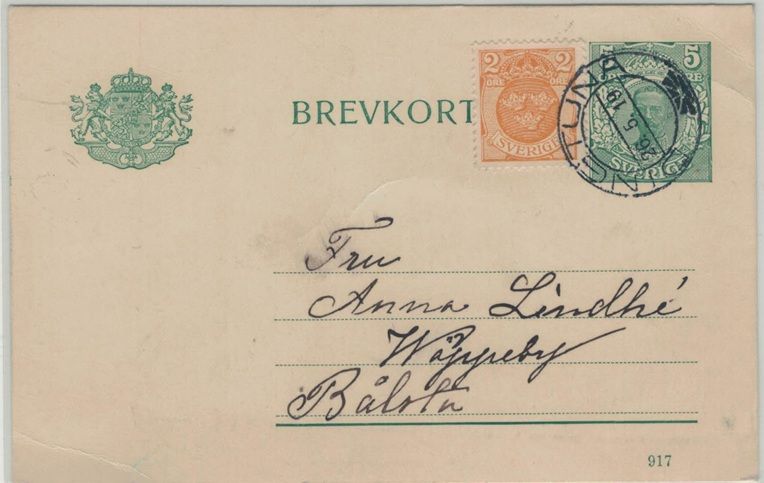 BREVKORT
2 2
ÖRE ÖRE
SVERIGE
5 5
ÖRE
SVERIGE
26.5.19
Fru
Anna Lindhé
Wäppeby
Bålsta
917